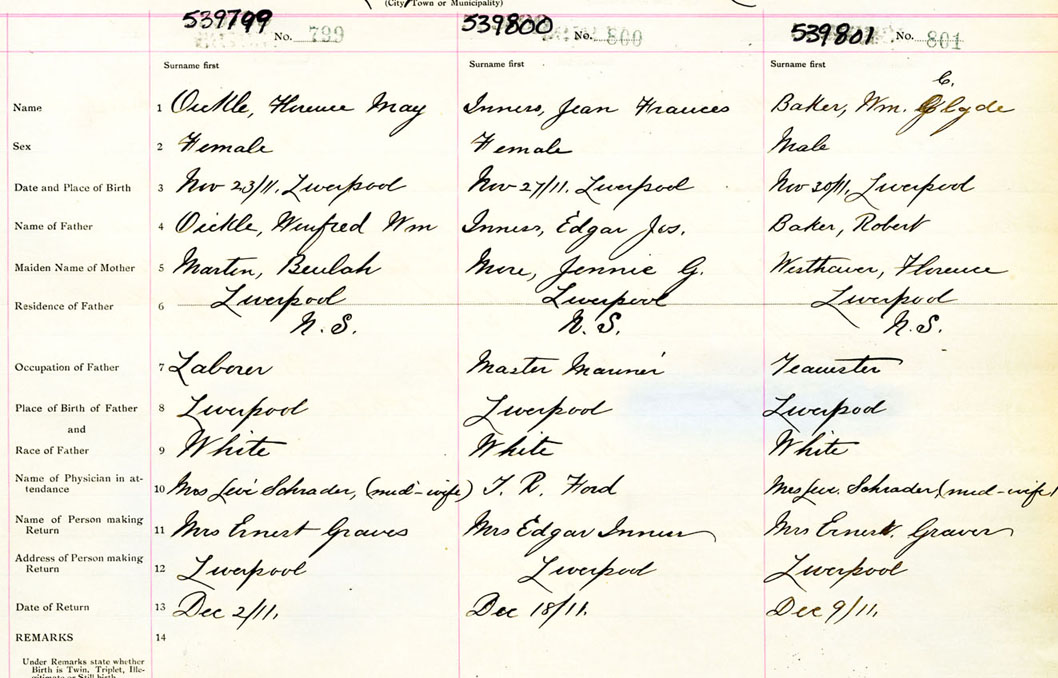 (City, Town or Municipality)
539799 No. 799 539800 No. 800 539801 No. 801
Surname first Surname first Surname first
C.
Name 1 Oickle, Florence May Inness, Jean Frances Baker, Wm. Clyde
Sex 2 Female Female Male
Date and Place of Birth 3 Nov 23/11. Liverpool Nov 27/11. Liverpool Nov 30/11. Liverpool
Name of Father 4 Oickle, Winfred Wm Inness, Edgar Jos. Baker, Robert
Maiden Name of Mother 5 Martin, Beulah More, Jennie G. Westhaver, Florence
Residence of Father 6 Liverpool Liverpool Liverpool
N.S. N.S. N.S.
Occupation of Father 7 Laborer Master Mariner Teamster
Place of Birth of Father 8 Liverpool Liverpool Liverpool
and
Race of Father 9 White White White
Name of Physician in at-
tendance 10 Mrs Levi Schrader, (mid-wife) T. R. Ford Mrs Levi. Schrader (mid-wife)
Name of Person making
Return 11 Mrs Ernest Graves Mrs Edgar Inness Mrs Ernest. Graves
Address of Person making
Return 12 Liverpool Liverpool Liverpool
Date of Return 13 Dec 2/11. Dec 18/11. Dec 9/11.
REMARKS 14
Under Remarks state whether
Birth is Twin, Triplet, Ille-
gitimate or Still birth.